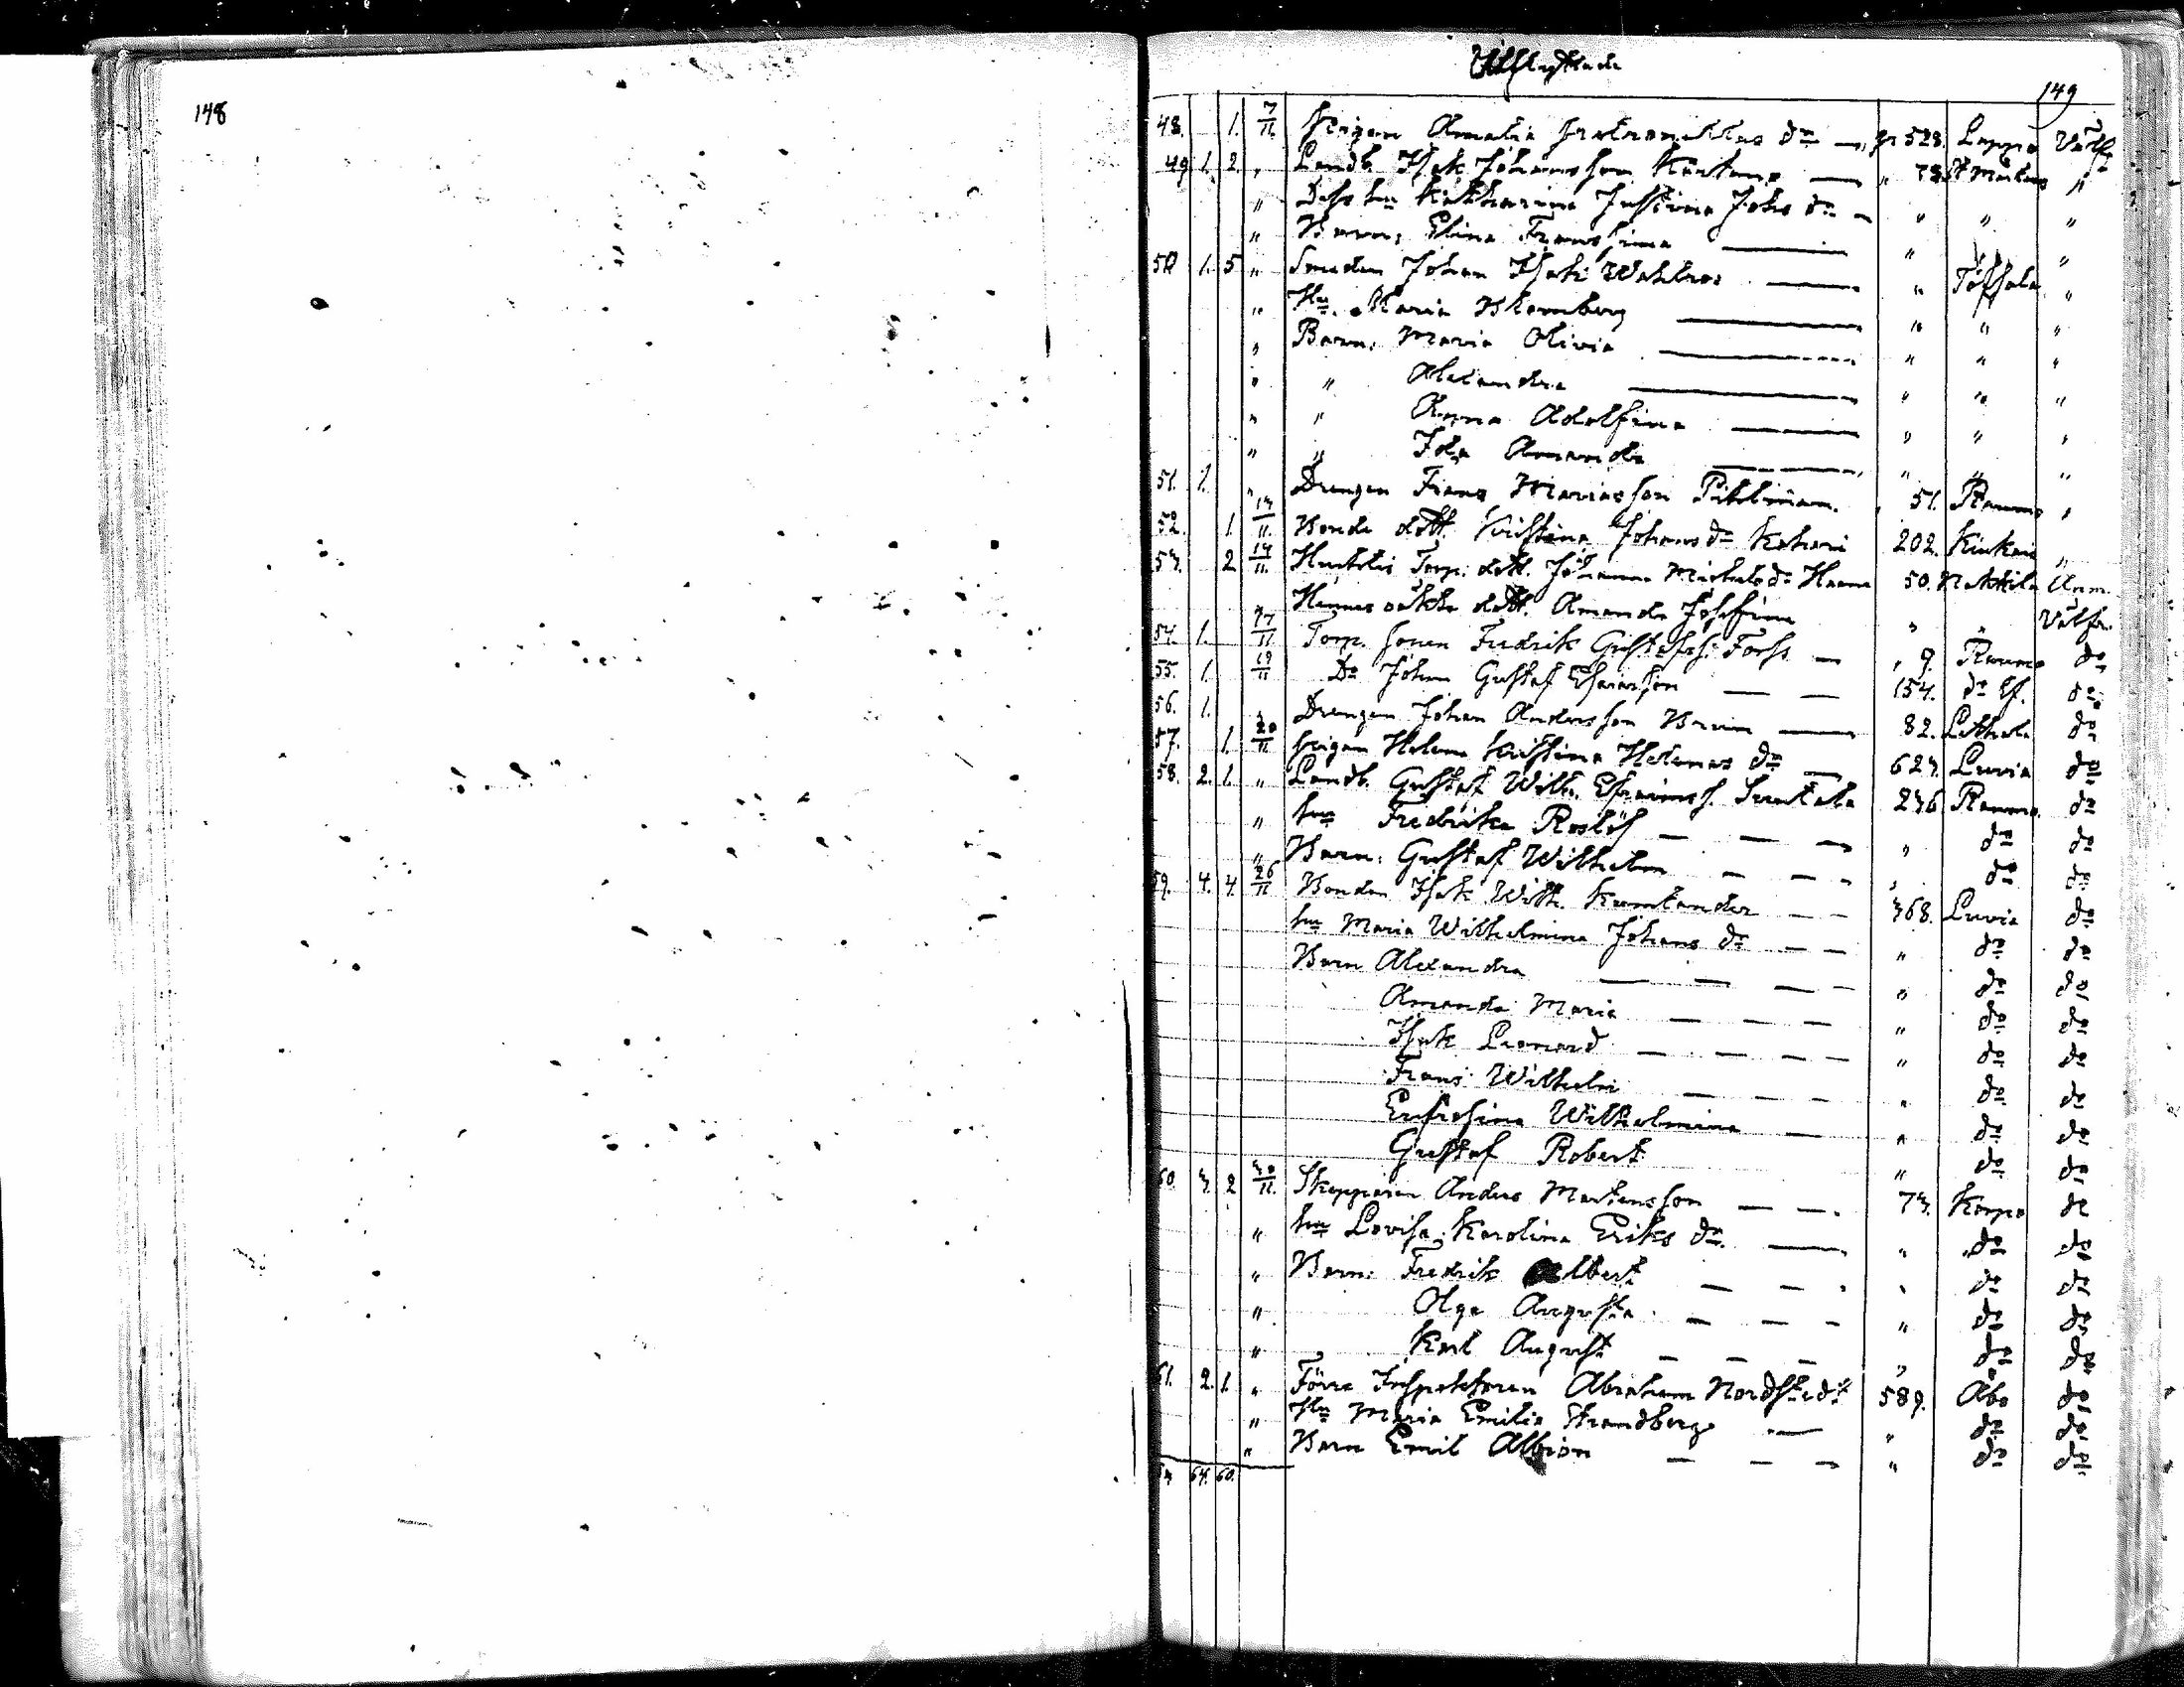 148
Utflyttade
149
48. 1. 7/11 Pigan Amalia d:r 528. Lappo Välf
49 1. 2. " Landb. Isak Johansson " 78. St Mårtens "
" Dess hu Katharina Justina Johs d:r " " "
" Barn: Elina Fransina " "
50 1. 5 " Smeden Johan Isak Wahlroos " Töfsala "
" Hu. Maria Blomberg " " "
" Barn: Maria Olivia " " "
" " Alexandra " " "
" " Anna Adolfina " " "
" " Ida Amanda " " "
51. 1. " Drengen Frans Mariasson Pihlman. " 51. Raumo "
52. 1. 13/11. Bonde dott. Kristina Johans d:r 202. Kiukais "
53. 2 14/11. Huuhtis Torp. dott. Johanna Michels d:r Haana 50. Nakkila Anm.
Hennes oäkta dott. Amanda Josefina " " Välfr.
54. 1. 17/11 Torp. sonen Fredrik Gustafss: Forss " 9. Raumo d:o
55. 1. 19/11 D:o Johan Gustaf Efraimsson 154. d:o Ef. d:o
56. 1. " Drengen Johan Andersson Brun 82. Letthala d:o
57. 1. 20/11 Pigan Helena Kristina Helenas d:r 623. Luvia d:o
58. 2. 1. " Landb. Gustaf Wilh. Efraimss. Suutala 236 Raumo. d:o
" hu Fredrika Roslöf " d:o d:o
" Barn: Gustaf Wilhelm " d:o d:o
59. 4. 4. 26/11 Bonden Isak Wilh. Kumlander 368. Luvia d:o
hu Maria Wilhelmina Johans d:r " d:o d:o
Barn Alexandra " d:o d:o
Amanda Maria " d:o d:o
Isak Leonard " d:o d:o
Frans Wilhelm " d:o d:o
Eufrosina Wilhelmina " d:o d:o
Gustaf Robert " d:o d:o
60. 3. 2 30/11. Skepparen Anders Martensson 73. Korpo d:o
" hu Lovisa Karolina Eriks d:r. " d:o d:o
" Barn: Fredrik Albert " d:o d:o
" Olga Augusta " d:o d:o
" Karl August " d:o d:o
61. 2. 1. " Förre Inspektoren Abraham Nordstedt 589. Åbo d:o
" Hu Maria Emilia Strandberg " d:o d:o
" Barn Emil Albion " d:o d:o
64. 60.